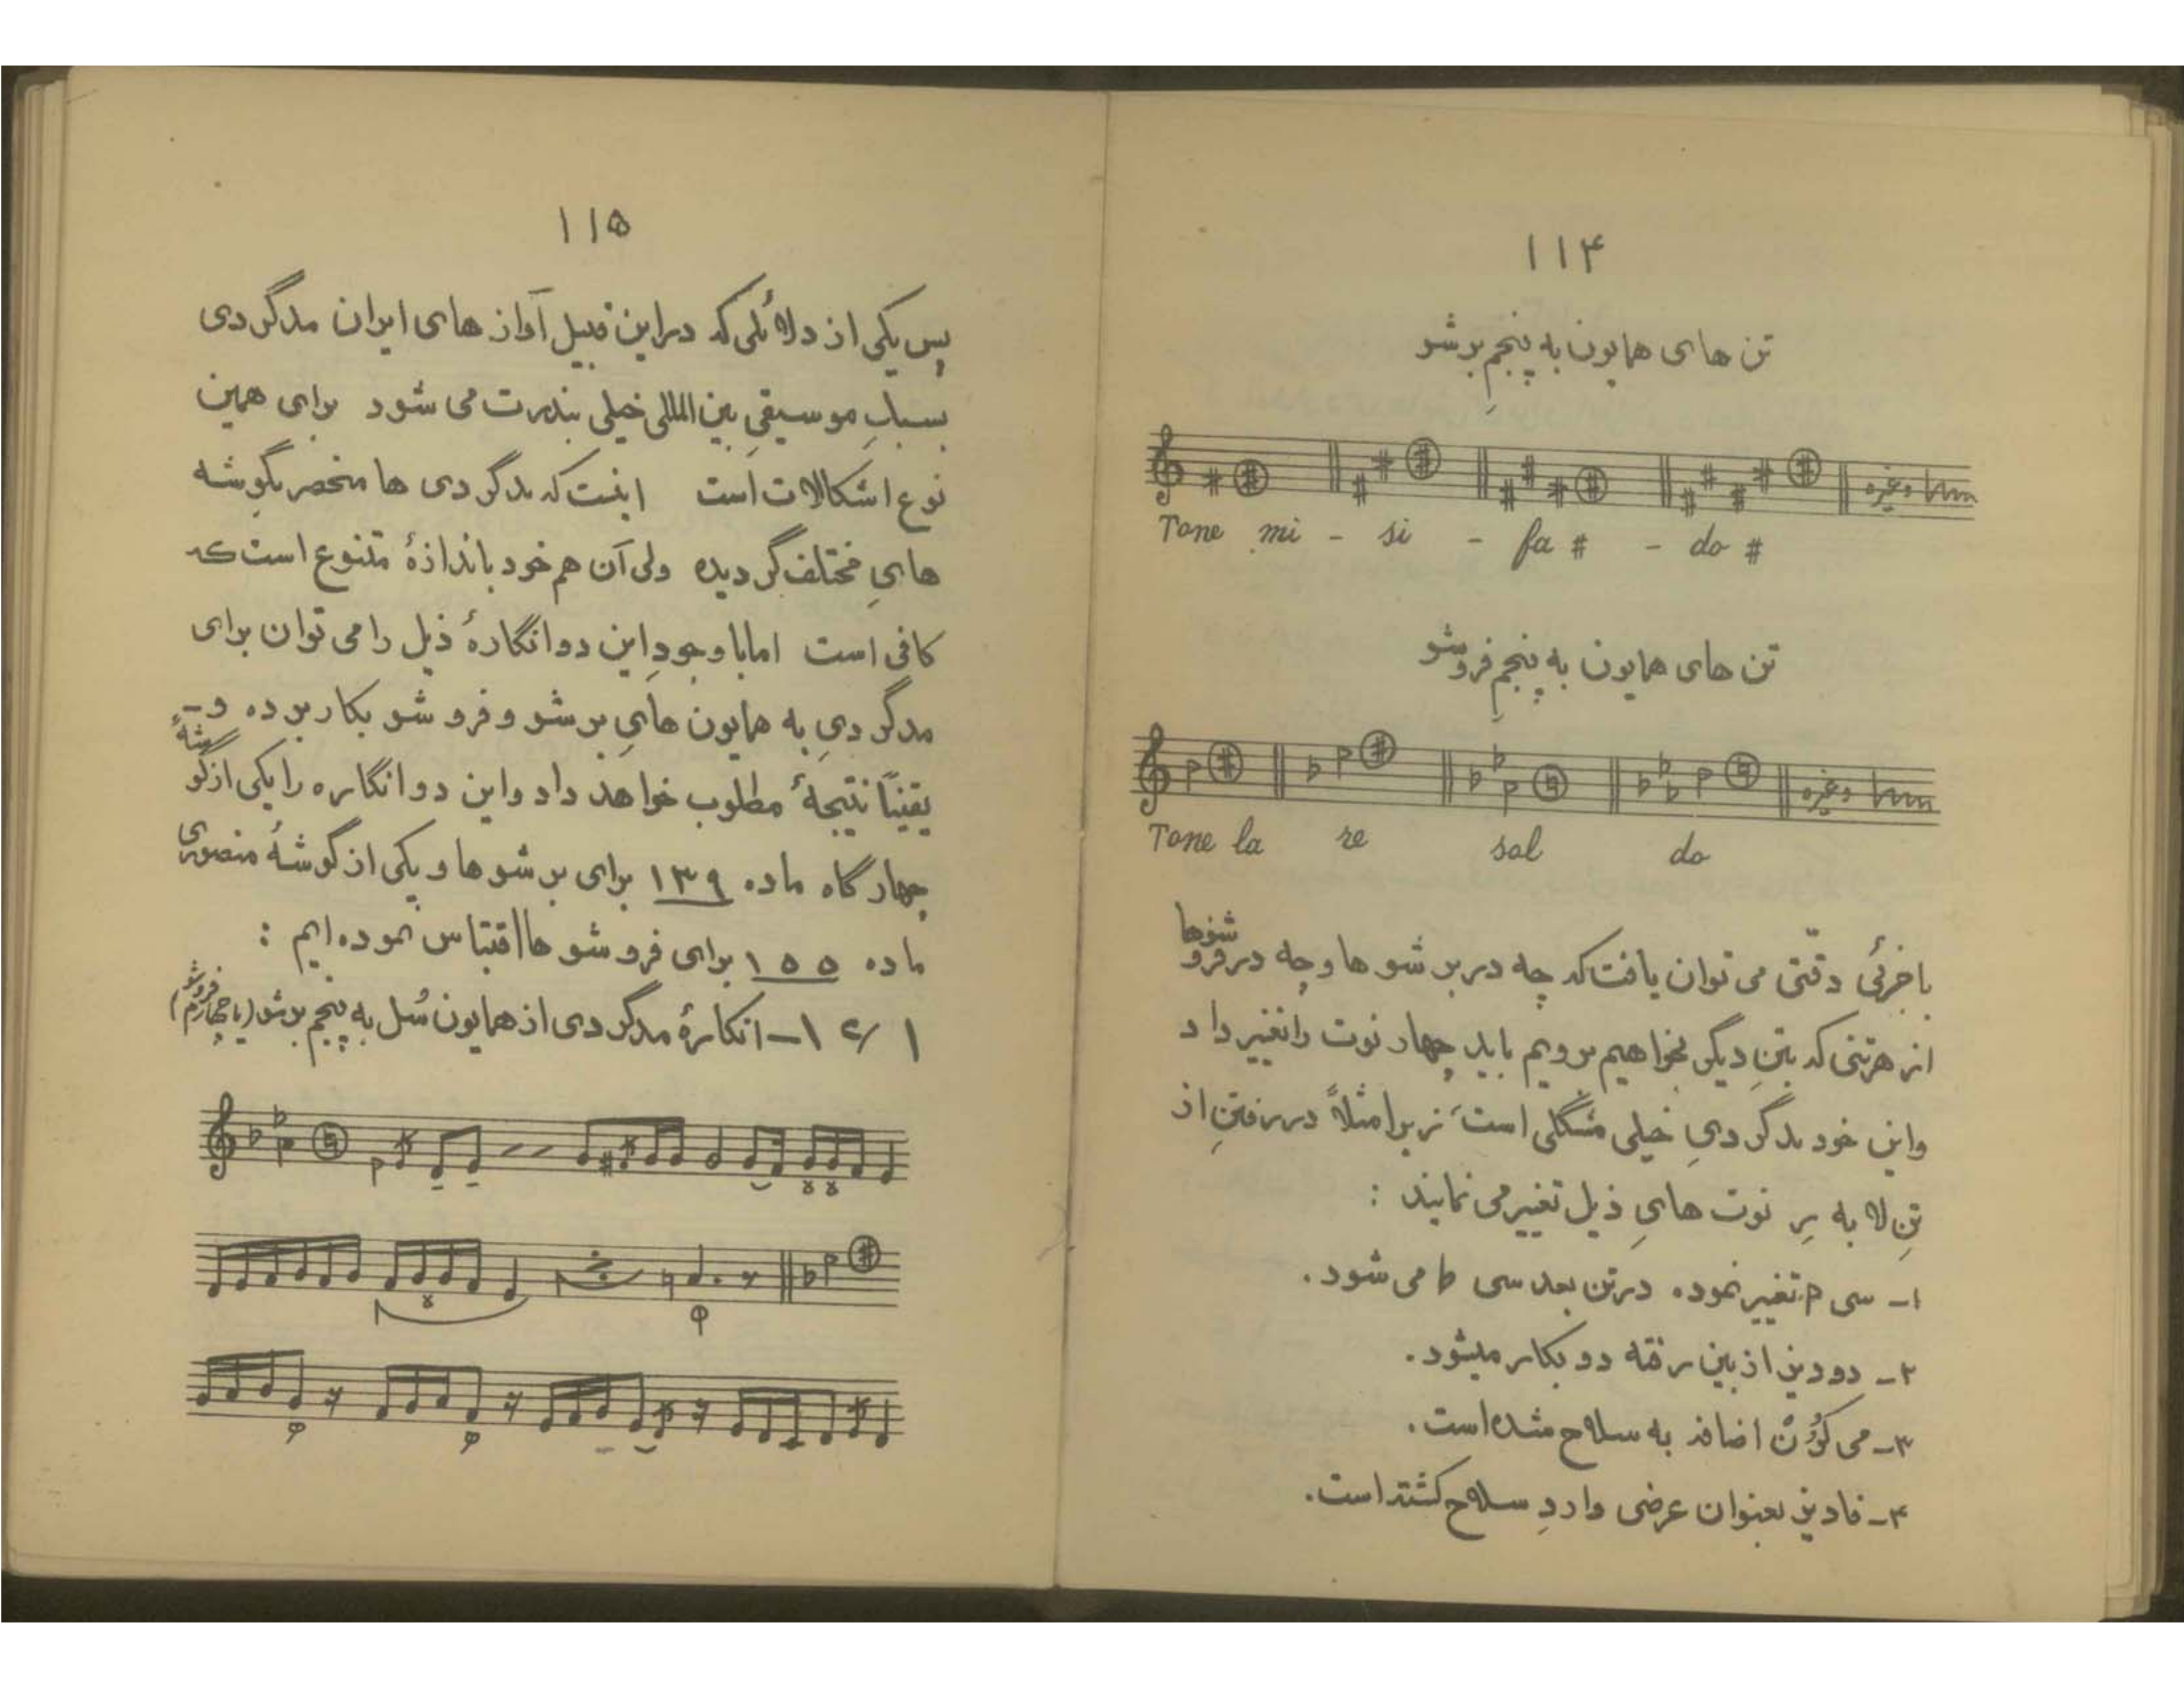 ۱۱۴
تن های همایون به پنجمِ برشو
وغیره
Tone mi - si - fa # - do #
تن های همایون به پنجمِ فروشو
وغیره
Tone la re sol do
باجزئی دقّتی می توان یافت که چه در برشو ها و چه در فروشوها
از هرتنی که بتنِ دیگر بخواهیم برویم باید چهار نوت را تغییر داد
واین خود مدگردیِ خیلی مشگلی است زیرا مثلاً در رفتنِ از
تنِ لا به رِ نوت هایِ ذیل تغییر می نمایند :
۱- سی p تغییر نموده در تن بعد سی b می شود .
۲- دودیز از بین رفته دو بکار میشود .
۳- می کُرُن اضافه به سلاح شده است .
۴- فادیز بعنوان عرضی واردِ سلاح گشته است .
۱۱۵
پس یکی از دلائلی که در این قبیل آواز های ایران مدگردی
بسبکِ موسیقیِ بین المللی خیلی بندرت می شود برای همین
نوع اشکالات است اینست که مدگردی ها منحصر بگوشه
هایِ مختلف گردیده ولی آن هم خود باندازهٔ متنوع است که
کافی است اما با وجودِ این دو انگارهٔ ذیل را می توان برای
مدگردیِ به همایون هایِ برشو و فروشو بکار برده و -
یقیناً نتیجهٔ مطلوب خواهد داد و این دو انگاره را یکی از گوشهٔ
چهارگاه ماده ۱۳۹ برای برشو ها و یکی از گوشهٔ منصوری
ماده ۱۵۵ برای فروشو ها اقتباس نموده ایم :
۱۷۱ - انگارهٔ مدگردی از همایون سُل به پنجم برشو (یا چهارم فروشو)